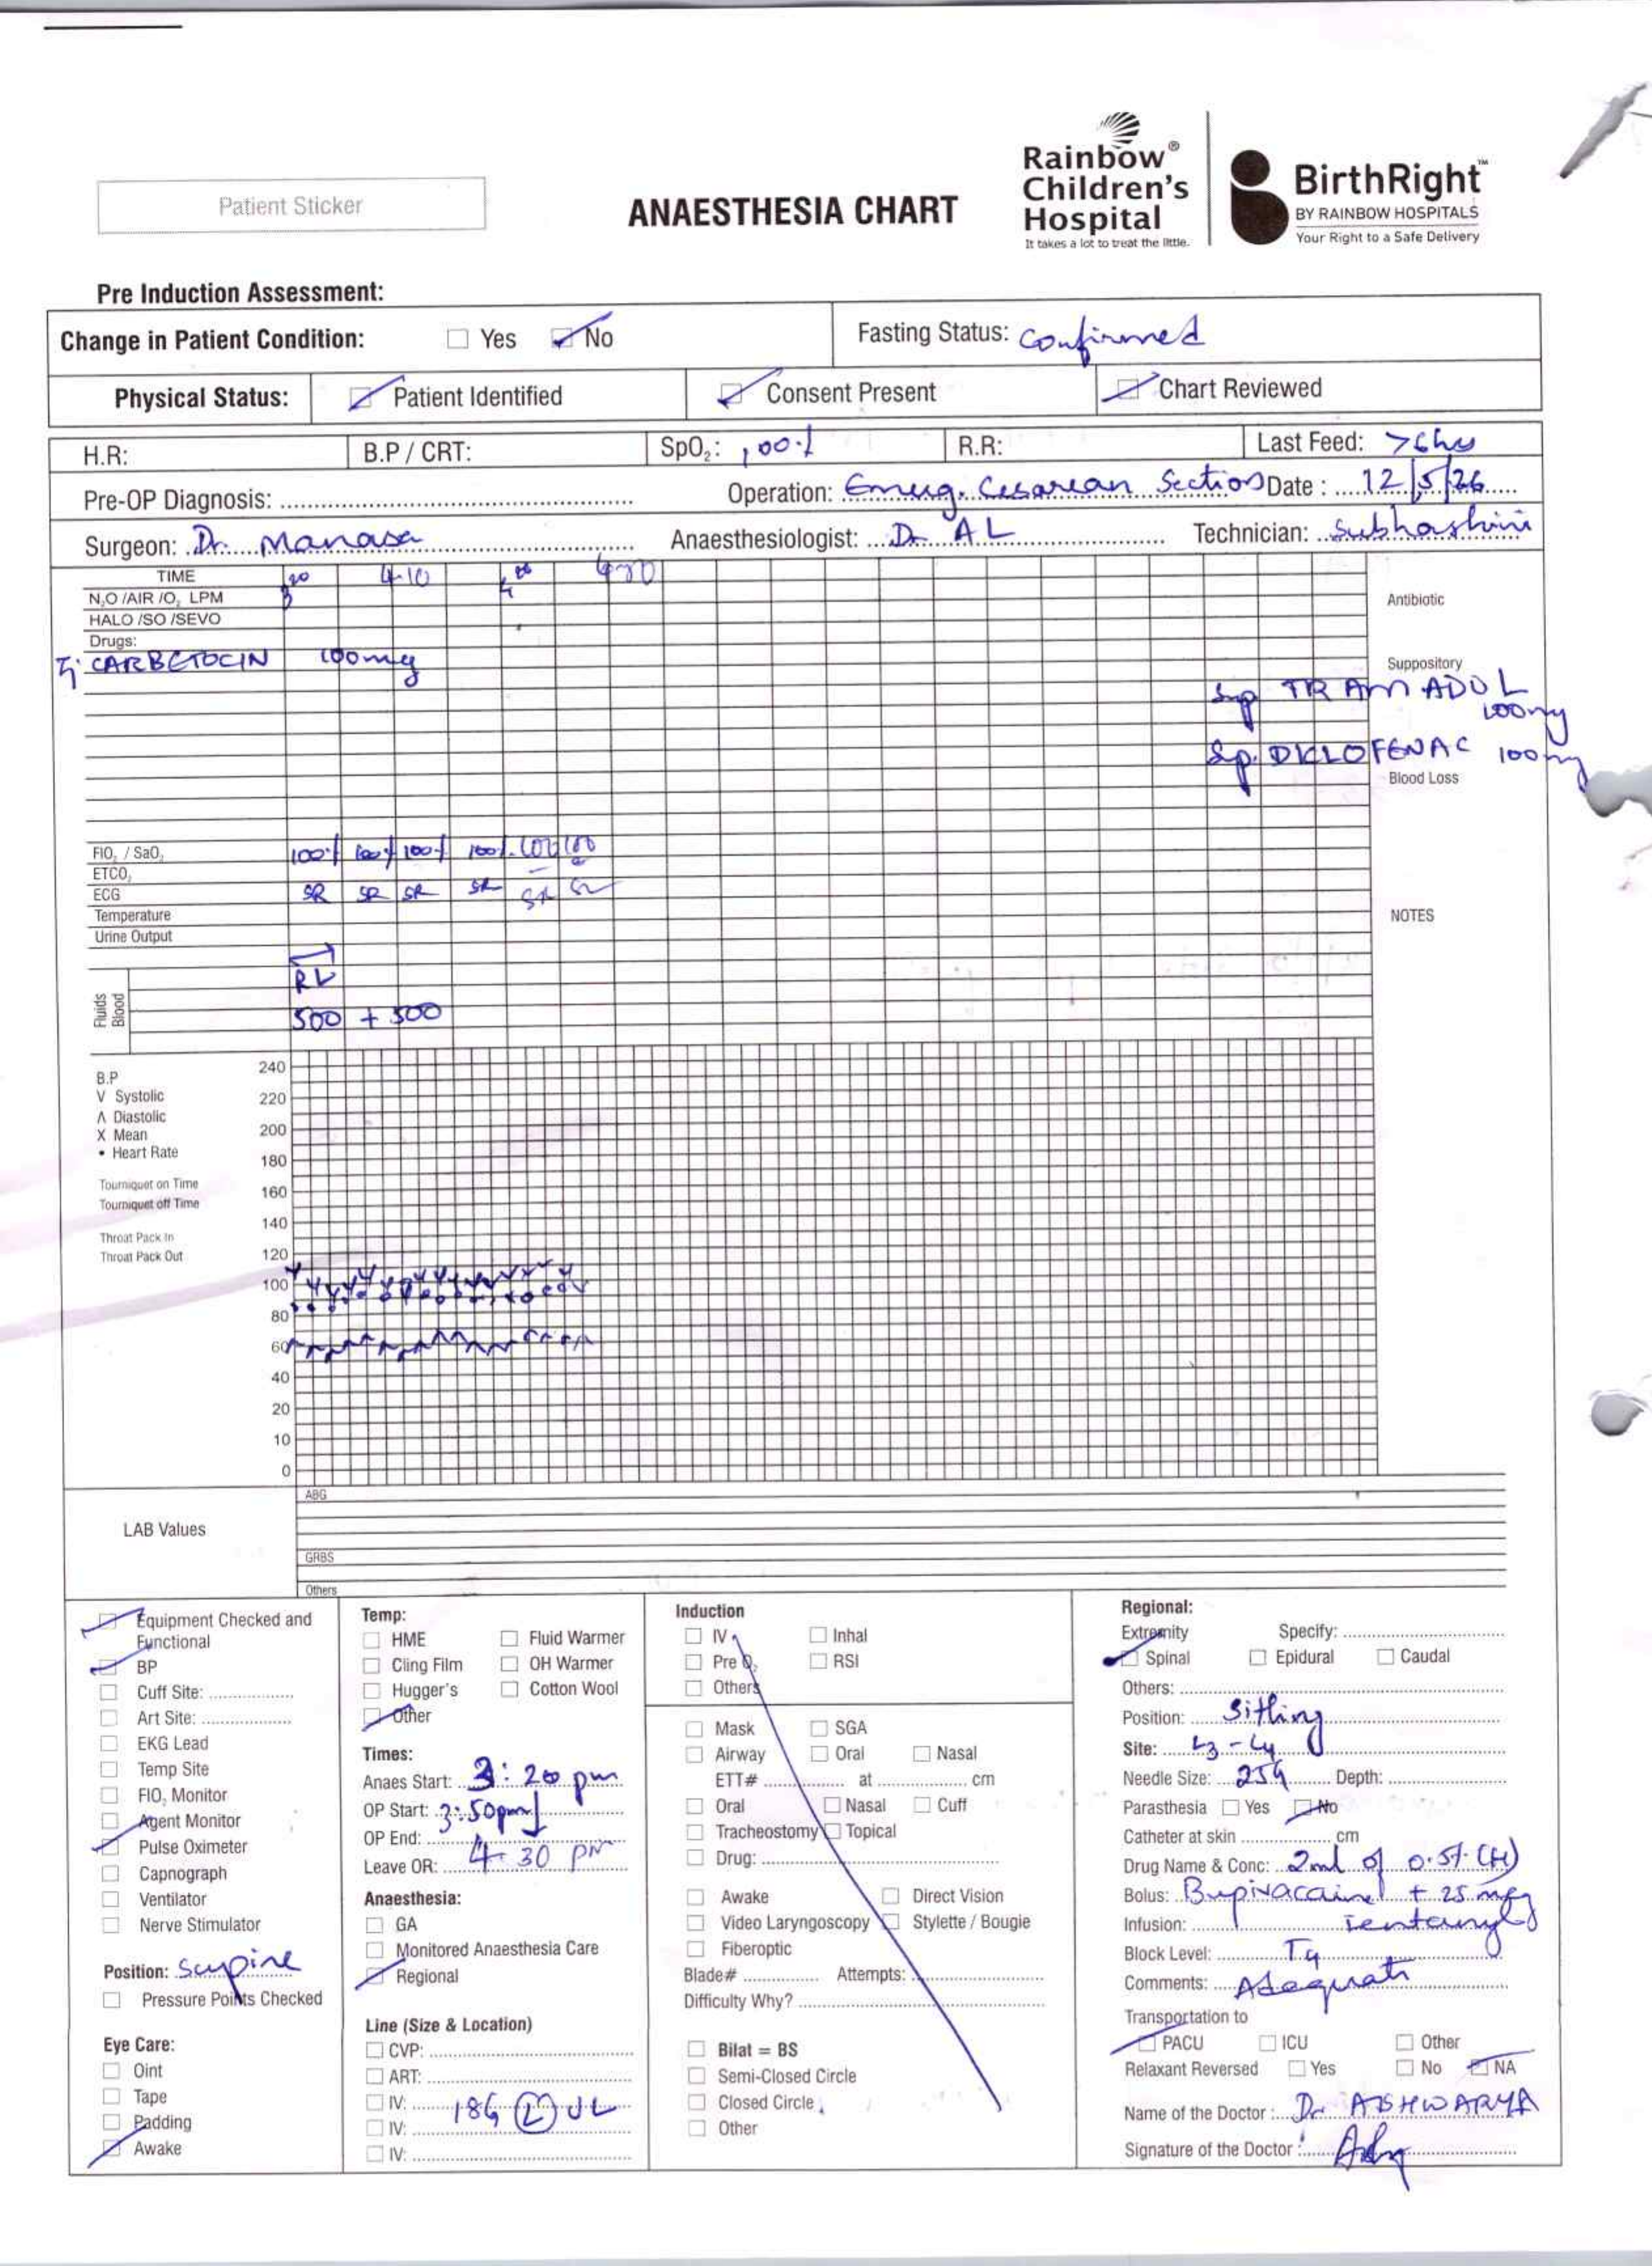 Patient Sticker
ANAESTHESIA CHART
Rainbow®
Children's
Hospital
It takes a lot to treat the little.
BirthRight™
BY RAINBOW HOSPITALS
Your Right to a Safe Delivery
Pre Induction Assessment:
Change in Patient Condition: Yes No
Fasting Status: confirmed
Physical Status: Patient Identified Consent Present Chart Reviewed
H.R: B.P / CRT: SpO₂: 100% R.R: Last Feed: >6hrs
Pre-OP Diagnosis: Operation: Emerg. Cesarean Section Date : 12/5/26
Surgeon: Dr. Manasa Anaesthesiologist: Dr AL Technician: Subhashini
TIME 4.10
N₂O /AIR /O₂ LPM Antibiotic
HALO /SO /SEVO
Drugs:
CARBETOCIN 100mg Suppository
Sup TRAMADOL
100mg
Sp. DICLOFENAC 100mg
Blood Loss
FIO₂ / SaO₂ 100% 100% 100% 100% 100 100
ETCO₂
ECG SR SR SR SR SR SR
Temperature NOTES
Urine Output
RL
Fluids
Blood
500 + 500
B.P
V Systolic
Λ Diastolic
X Mean
• Heart Rate
Tourniquet on Time
Tourniquet off Time
Throat Pack In
Throat Pack Out
240
220
200
180
160
140
120
100
80
60
40
20
10
0
LAB Values
ABG
GRBS
Others
Equipment Checked and
Functional
BP
Cuff Site:
Art Site:
EKG Lead
Temp Site
FIO₂ Monitor
Agent Monitor
Pulse Oximeter
Capnograph
Ventilator
Nerve Stimulator
Position: Supine
Pressure Points Checked
Eye Care:
Oint
Tape
Padding
Awake
Temp:
HME Fluid Warmer
Cling Film OH Warmer
Hugger's Cotton Wool
Other
Times:
Anaes Start: 3:20 pm
OP Start: 3:50pm
OP End:
Leave OR: 4-30 pm
Anaesthesia:
GA
Monitored Anaesthesia Care
Regional
Line (Size & Location)
CVP:
ART:
IV: 18G (L) UL
IV:
IV:
Induction
IV Inhal
Pre O₂ RSI
Others
Mask SGA
Airway Oral Nasal
ETT# at cm
Oral Nasal Cuff
Tracheostomy Topical
Drug:
Awake Direct Vision
Video Laryngoscopy Stylette / Bougie
Fiberoptic
Blade# Attempts:
Difficulty Why?
Bilat = BS
Semi-Closed Circle
Closed Circle
Other
Regional:
Extremity Specify:
Spinal Epidural Caudal
Others:
Position: Sitting
Site: L3 - L4
Needle Size: 25G Depth:
Parasthesia Yes No
Catheter at skin cm
Drug Name & Conc: 2ml of 0.5% (H)
Bolus: Bupivacaine + 25 mcg
Infusion: Fentanyl
Block Level: T4
Comments: Adequate
Transportation to
PACU ICU Other
Relaxant Reversed Yes No NA
Name of the Doctor : Dr AISHWARYA
Signature of the Doctor :